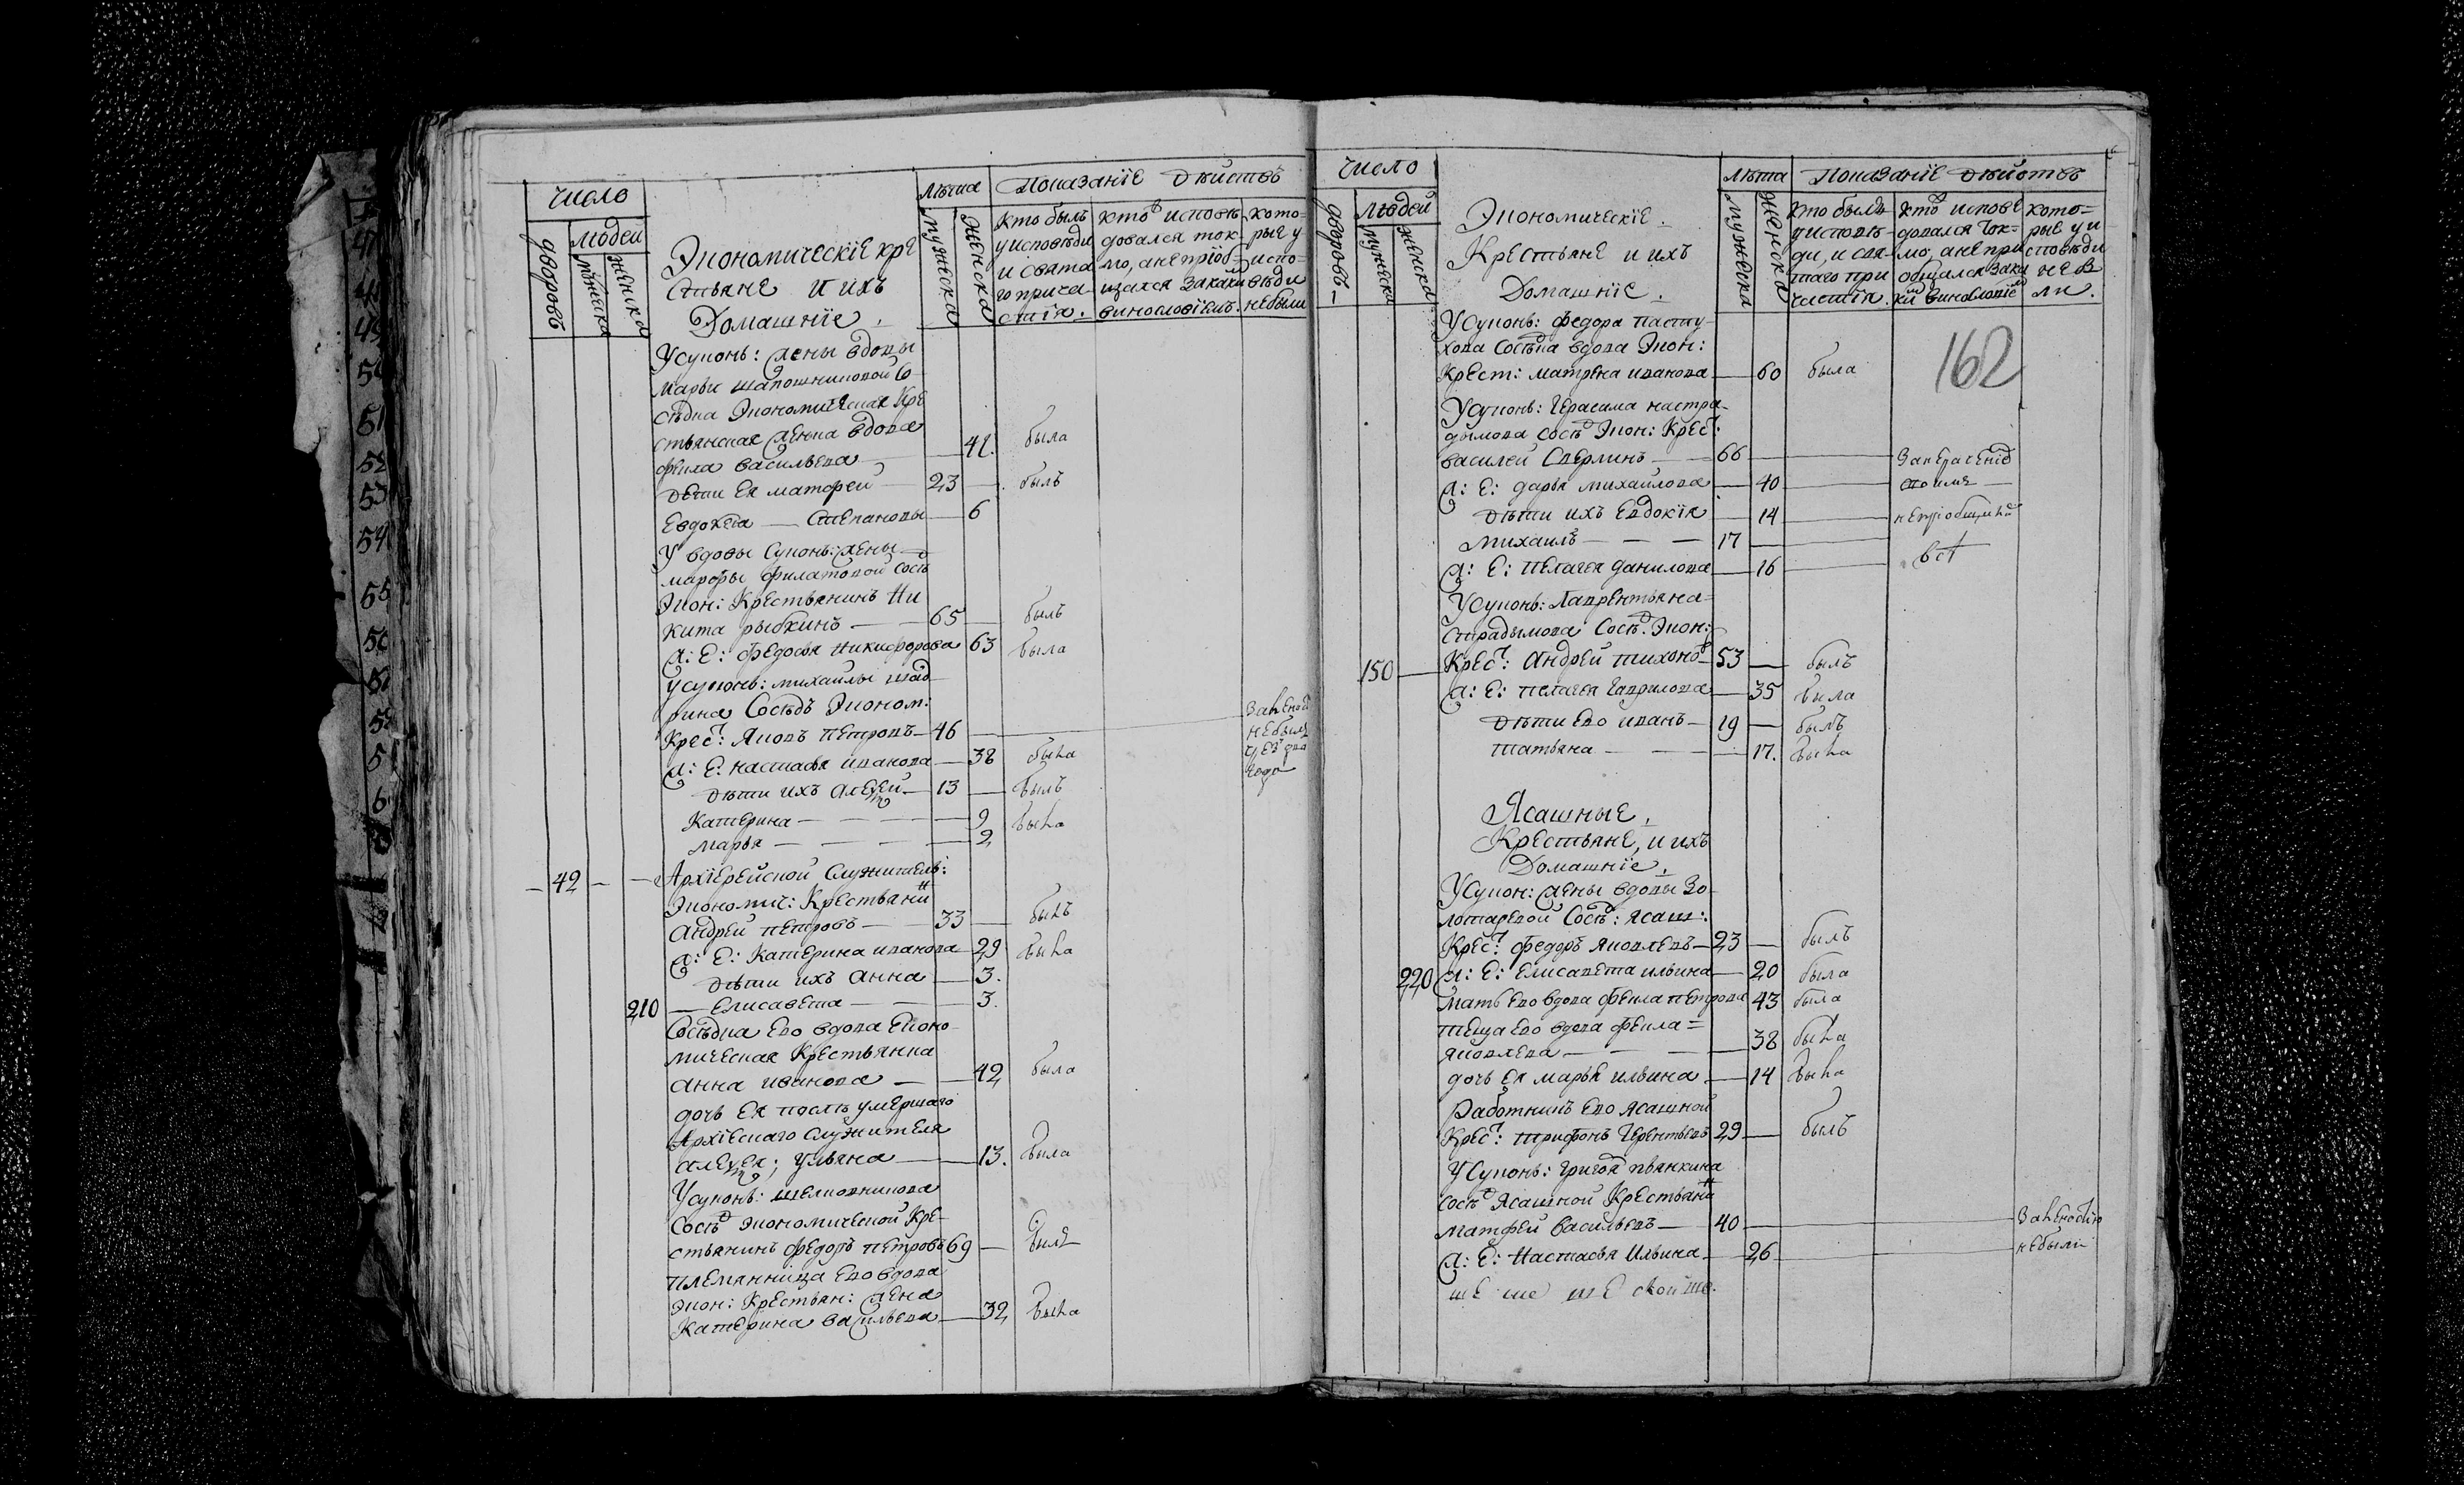 число
людей
дворовъ
мужеска
женска
Экономическіе кре
стьяне и ихъ
Домашніе.
лѣта
мужеска
женска
Показаніе дѣйствъ
Кто былъ у исповѣди и свята го прича стія.
кто исповѣ довался ток- мо, а не пріоб- щался за каки винословіемъ.
кото- рые у испо- вѣди не были
У купонь: жены вдовы
Марьи шапошниковой со
сѣдка Экономическая кре
стьянская женка вдова
Фекла Васильева 41. была
дети ея Матфей 23 былъ
Евдокѣа Степановы 6
У вдовы купонь: жены
Марфы Филатовой сосѣ
Экон: Крестьянинъ Ни
кита рыбкинъ 65 былъ
ж: Е: Федосья Никифорова 63 была
у купонь: Михайлы шад
рина Сосѣдъ Эконом:
Крест: Яковъ Петровъ 46
ж: Е: настасья иванова 38 была
дѣти ихъ Алеѯей 13 былъ
Катерина 9 была
Марья 2
42 Архіерейской Служитель:
Экономич: Крестьянинъ
Андрей Петровъ 33 былъ
ж: Е: Катерина иванова 29 была
дѣти ихъ Анна 3.
210 Елисавета 3.
Сосѣдка Ево вдова Еконо
мическая Крестьянка
Анна иванова 42 была
дочь Ея послѣ умершаго
Архіескаго служителя
Алеѯея; Ульяна 13. была
У купонь: шелковникова
Сосѣд экономической Кре-
стьянинъ Федоръ Петровъ 69 былъ
племянница Ево вдова
экон: Крестьян: жена
Катерина васильева 32 была
число
людей
дворовъ
мужеска
женска
Экономическіе.
Крестьяне и ихъ
Домашніе.
лѣта
мужеска
женска
Показаніе дѣйствъ
Кто былъ у исповѣ- ди, и свя- таго при частія.
Кто исповѣ довался ток- мо, а не при общался за ка кимъ винословіем
кото= рые у и споведи не бы ли.
162
У купонь: Федора пасту
хова Сосѣдка вдова Экон:
Крест: Матрена иванова 60 была
У купонь: Герасима настра-
дымова сосѣд Экон: Крест:
Василей Сверлинъ 66
ж: Е: дарья Михайлова 40
дѣти ихъ Евдокія 14
Михаилъ 17
ж: Е: Пелагея данилова 16 всѣ
У купонь: Лаврентья на-
страдымова Сосѣд. Экон:
150 Крест: Андрей тихонов 53 былъ
ж: Е: пелагея Гаврилова 35 была
дѣти Ево иванъ 19 былъ
татьяна 17. была
Ясашные,
Крестьяне, и ихъ
Домашніе.
У купон: жены вдовы Зо-
лотаревой Сосѣд: ясаш:
Крест: Федоръ Яковлевъ 23 былъ
220 ж: Е: Елисавета ильина 20 была
мать Ево вдова Фекла петрова 43 была
теща Ево вдова Фекла=
яковлева 38 была
дочь Ея марья ильина 14 была
Работникъ Ево ясашной
Крест: Трифонъ Терентьевъ 29 былъ
У купонь: Григорья пьянкина
сосѣд Ясашной Крестьянинъ
Матфей Васильевъ 40
ж: Е: Настасья Ильина 26 небыли